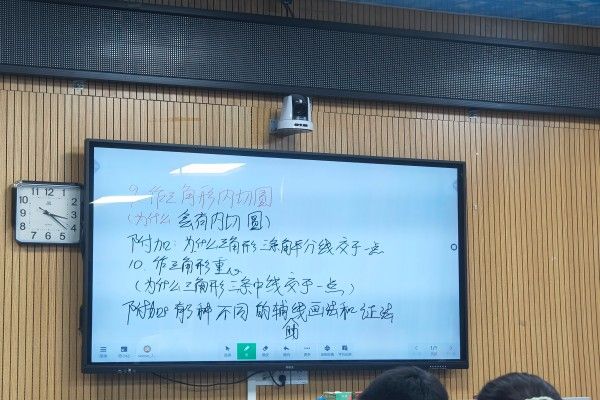 9. 作三角形内切圆
(为什么会有内切圆)
附加: 为什么三角形三条角平分线交于一点
10. 作三角形重心
(为什么三角形三条中线交于一点)
附加: 种不同的辅线画法和证法